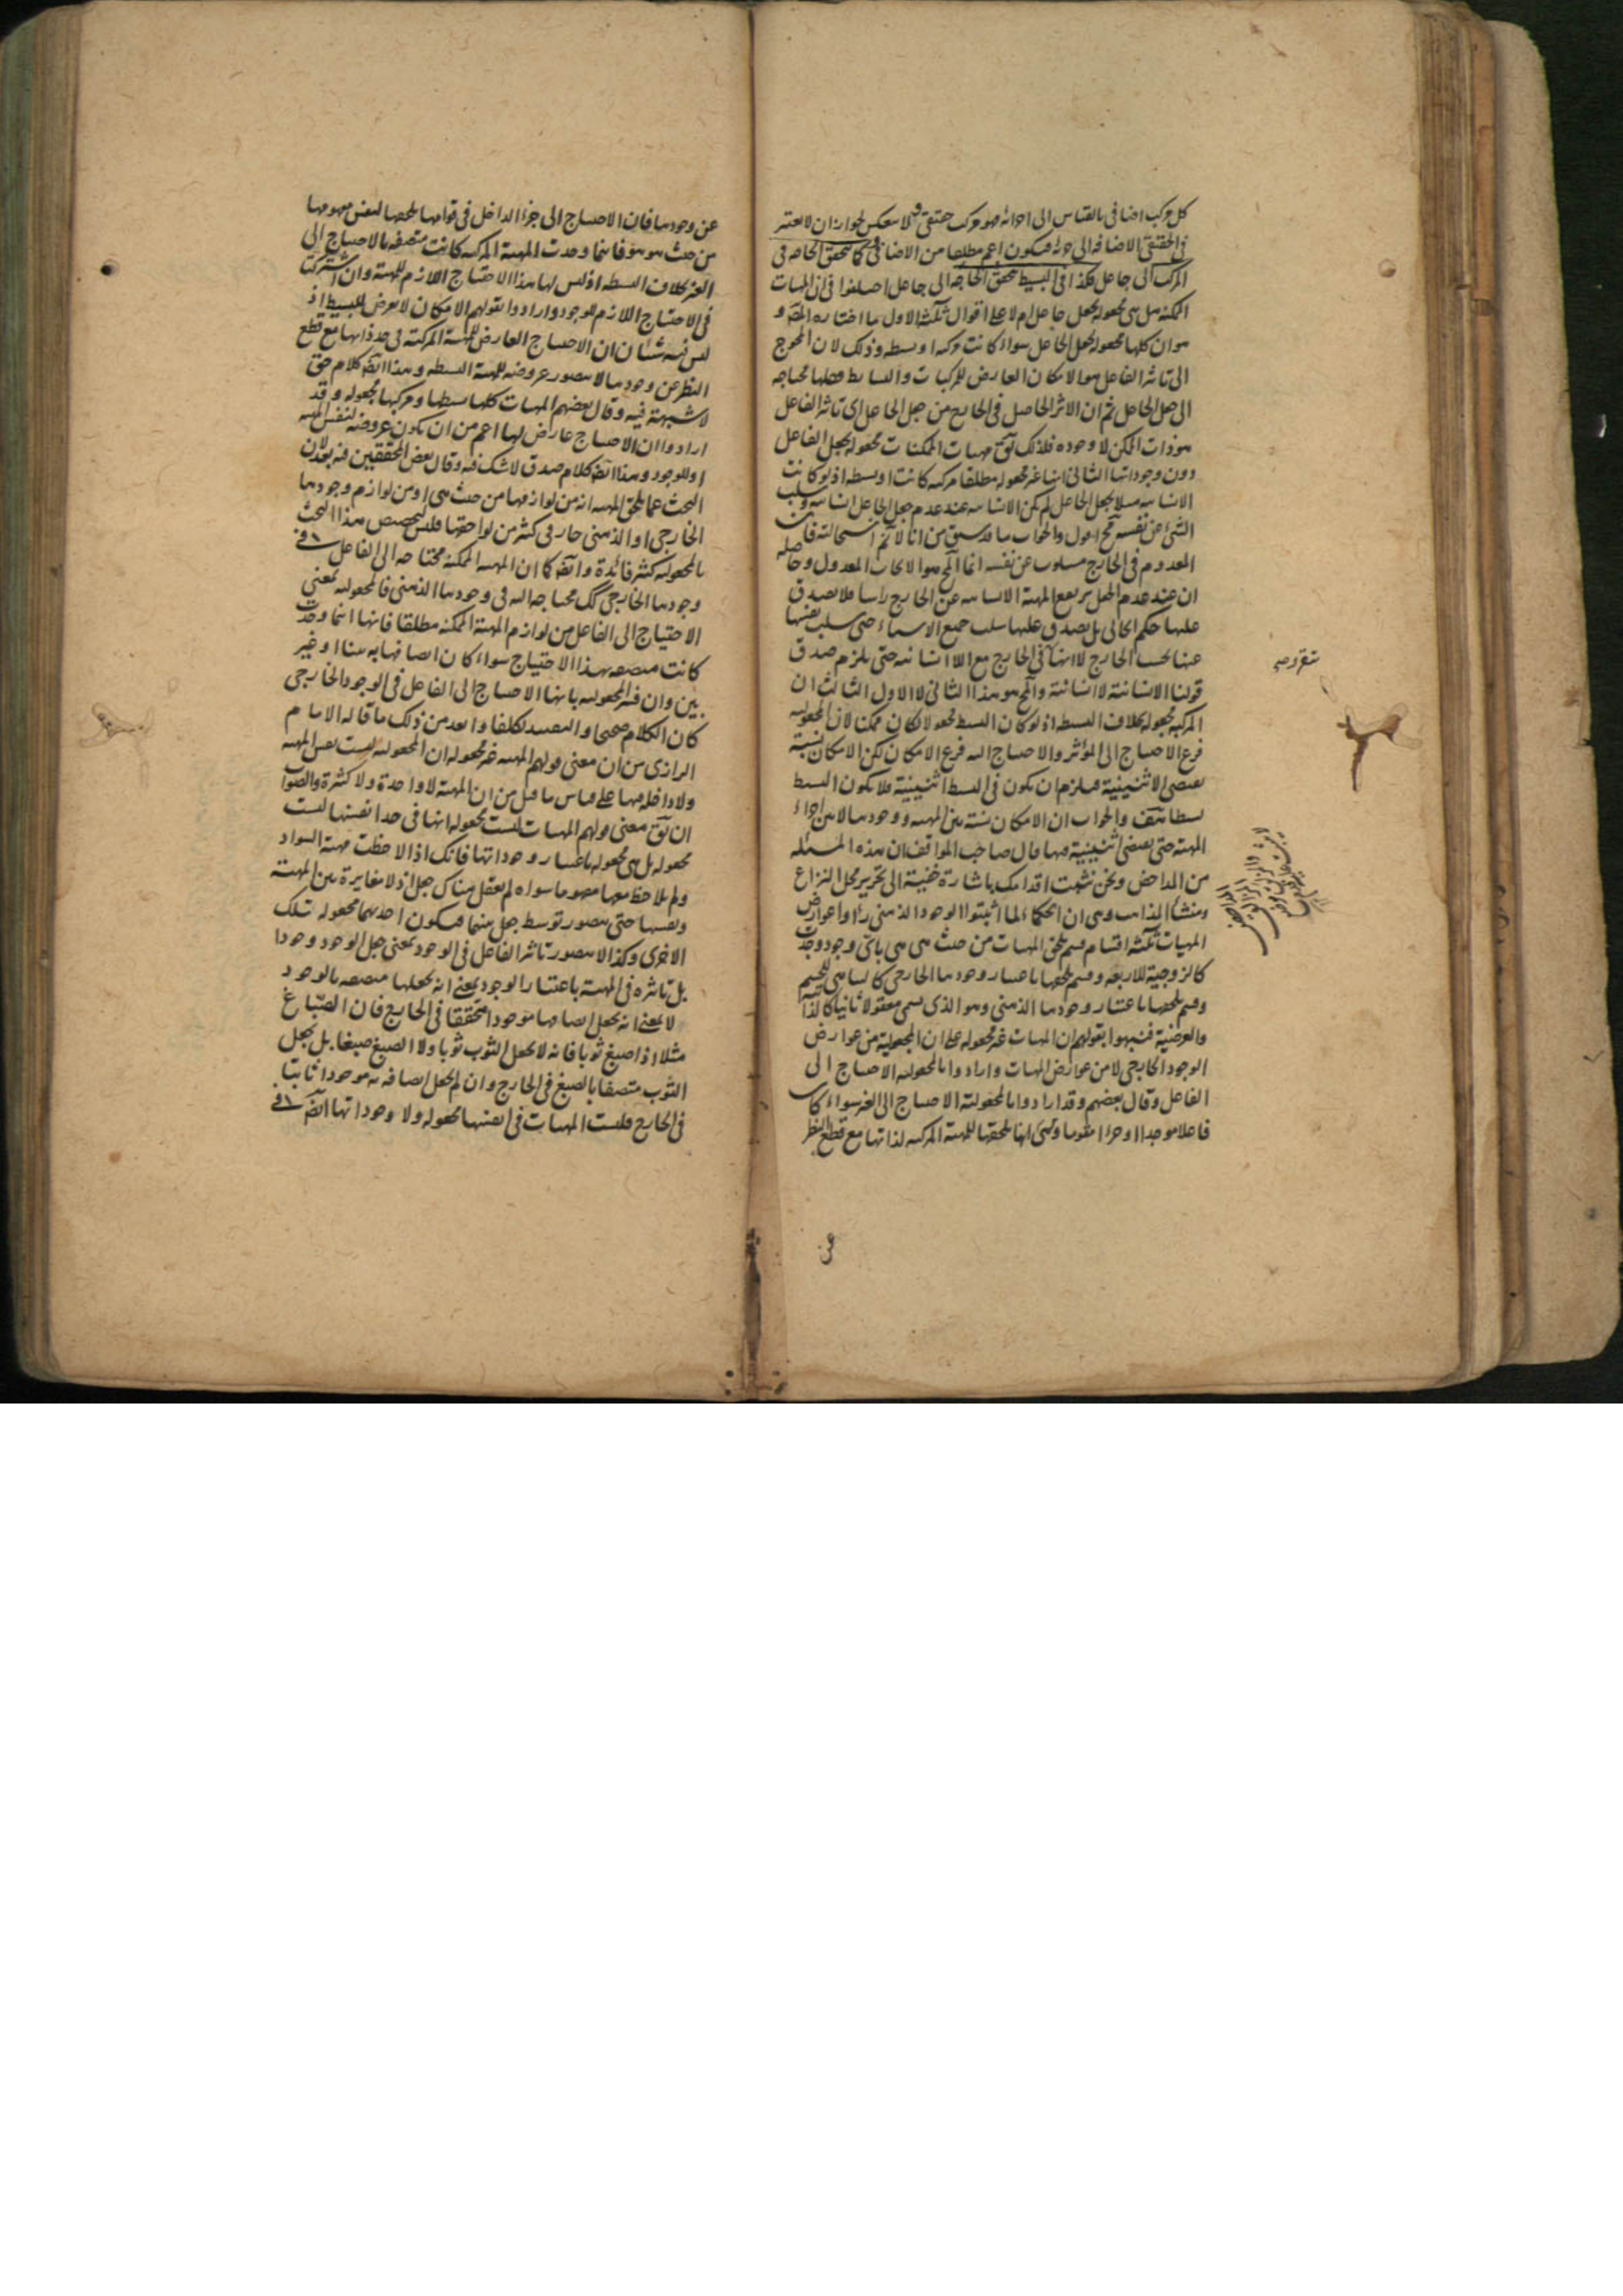 كل مركب اضافى بالقياس الى اجزائه فهو مركب حقيقى ولا ينعكس لجواز ان لا يعتبر
فى الحقيقى الاضافة الى جزئه فيكون اعم مطلقا من الاضافى وكما يتحقق الحاجة فى
المركب الى جاعل فكذا فى البسيط يتحقق الحاجة الى جاعل اختلفوا فى ان المهيات
الممكنة هل هى مجعولة بجعل جاعل ام لا على اقوال ثلثة الاول ما اختاره المصَ و
هو ان كلها مجعولة بجعل الجاعل سواء كانت مركبة او بسيطة وذلك لان المحوج
الى تاثير الفاعل هو الامكان العارض للمركبات والبسايط فكلها محتاجة
الى جعل الجاعل ثم ان الاثر الحاصل فى الخارج من جعل الجاعل اى تاثير الفاعل
هو ذات الممكن لا وجوده فلذلك يق مهيات الممكنات مجعولة بجعل الفاعل
دون وجوداتها الثانى انها غير مجعولة مطلقا مركبة كانت او بسيطة اذ لو كانت
الانسانية مثلا بجعل الجاعل لم يكن الانسانية عند عدم جعل الجاعل انسانية وسلب
الشئ عن نفسه مح اقول والجواب ما قد سبق من انا لا نم استحالته فان
المعدوم فى الخارج مسلوب عن نفسه انما المح هو الايجاب المعدول وحاصله
ان عند عدم الجعل يرتفع المهية الانسانية عن الخارج راسا فلا يصدق
عليها حكم ايجابى بل يصدق عليها سلب جميع الاشياء حتى سلب نفسها
عنها بحسب الخارج لا انها فى الخارج مع اللاانسانية حتى يلزم صدق
قولنا الانسانية لا انسانية والمح هو هذا الثانى لا الاول الثالث ان
المركبة مجعولة بخلاف البسيطة اذ لو كان البسيط مجعولا لكان ممكنا لان المجعولية
فرع الاحتياج الى المؤثر والاحتياج اليه فرع الامكان لكن الامكان نسبة
يقتضى الاثنينية فيلزم ان يكون فى البسيط اثنينية فلا يكون البسيط
بسيطا هف والجواب ان الامكان نسبة بين المهية ووجودها لا بين اجزاء
المهية حتى يقتضى اثنينية فيها قال صاحب المواقف ان هذه المسئلة
من المداحض ونحن نثبت اقدامك باشارة خفية الى تحرير محل النزاع
ومنشأ المذاهب وهى ان الحكماء لما اثبتوا الوجود الذهنى رأوا عوارض
المهيات ثلثة اقسام قسم يلحق المهيات من حيث هى هى باى وجود وجدت
كالزوجية للاربعة وقسم يلحقها باعتبار وجودها الخارجى كالتناهى للجسم
وقسم يلحقها باعتبار وجودها الذهنى وهو الذى يسمى معقولا ثانيا كالذاتية
والعرضية فنبهوا بقولهم ان المهيات غير مجعولة على ان المجعولية من عوارض
الوجود الخارجى لا من عوارض المهيات وارادوا بالمجعولية الاحتياج الى
الفاعل وقال بعضهم وقد ارادوا بالمجعولية الاحتياج الى الغير سواء كان
فاعلا موجدا او جزءا مقوما وهى انها يلحقها للمهية المركبة لذاتها مع قطع النظر
عن
عن وجودها فان الاحتياج الى جزئها الداخل فى قوامها يلحقها لنفس مفهومها
من حيث هو هو فاينما وجدت المهية المركبة كانت متصفة بالاحتياج الى
الغير بخلاف البسيطة اذ ليس لها هذا الاحتياج اللازم للمهية وان اشتركتا
فى الاحتياج اللازم للوجود وارادوا بقولهم الامكان لا يعرض للبسيط اذ
ليس فيه شيئان ان الاحتياج العارض للمهية المركبة فى حد ذاتها مع قطع
النظر عن وجودها لا يتصور عروضه للمهية البسيطة وهذا ايضَ كلام حق
لا شبهة فيه وقال بعضهم المهيات كلها بسيطها ومركبها مجعولة وقد
ارادوا ان الاحتياج عارض لها اعم من ان يكون عروضه لنفس المهية
او للوجود وهذا ايضَ كلام صدق لا شك فيه وقال بعض المحققين فيه بعد لان
البحث عما يلحق المهية انه من لوازمها من حيث هى او من لوازم وجودها
الخارجى او الذهنى جار فى كثير من لواحقها فليس لتخصيص هذا البحث
بالمجعولية كثير فائدة وايضَ كما ان المهية الممكنة محتاجة الى الفاعل فى
وجودها الخارجى كك محتاجة اليه فى وجودها الذهنى فالمجعولية بمعنى
الاحتياج الى الفاعل من لوازم المهية الممكنة مطلقا فانها اينما وجدت
كانت متصفة بهذا الاحتياج سواء كان اتصافها به بينا او غير
بين وان فسر المجعولية بانها الاحتياج الى الفاعل فى الوجود الخارجى
كان الكلام صحيحا والتقييد تكلفا وابعد من ذلك ما قاله الامام
الرازى من ان معنى قولهم المهية غير مجعولة ان المجعولية ليست نفس المهية
ولا داخلة فيها على قياس ما قيل من ان المهية لا واحدة ولا كثيرة والصواب
ان يق معنى قولهم المهيات ليست مجعولة انها فى حد انفسها ليست
مجعولة بل هى مجعولة باعتبار وجوداتها فانك اذا لاحظت مهية السواد
ولم تلاحظ معها مفهوما سواه لم يعقل هناك جعل اذ لا مغايرة بين المهية
ونفسها حتى يتصور توسط جعل بينهما فيكون احديهما مجعولة تلك
الاخرى وكذا لا يتصور تاثير الفاعل فى الوجود بمعنى جعل الوجود وجودا
بل تاثيره فى المهية باعتبار الوجود بمعنى انه يجعلها متصفة بالوجود
لا بمعنى انه يجعل اتصافها موجودا متحققا فى الخارج فان الصباغ
مثلا اذا صبغ ثوبا فانه لا يجعل الثوب ثوبا ولا الصبغ صبغا بل يجعل
الثوب متصفا بالصبغ فى الخارج وان لم يجعل اتصافه به موجودا ثابتا
فى الخارج فليست المهيات فى انفسها مجعولة ولا وجوداتها ايضَ فى